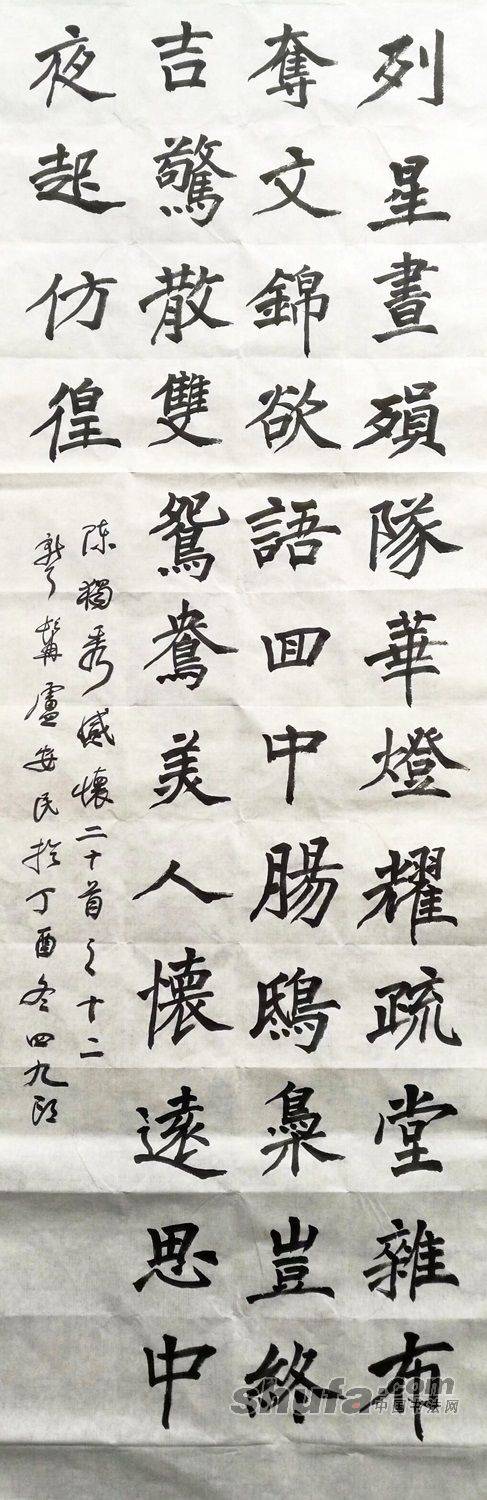 列星晝殞隊華燈耀疏堂雜布
奪文錦欲語回中腸鴟梟豈終
吉驚散雙鴛鴦美人懷遠思中
夜起仿徨
陳獨秀感懷二十首之十二
盧安民於丁酉冬四九
shufa.com
中国书法网